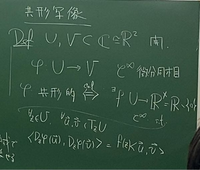 共形写像
Def U, V ⊂ ℂ ≅ ℝ² 開
φ: U → V C^∞ 微分同相
φ 共形的 ⇔ ∃ f: U → ℝ^× = ℝ∖{0}
C^∞ s.t.
∀z∈U ∀u⃗, v⃗ ∈ T_zU
⟨D_zφ(u⃗), D_zφ(v⃗)⟩ = f(z)⟨u⃗, v⃗⟩